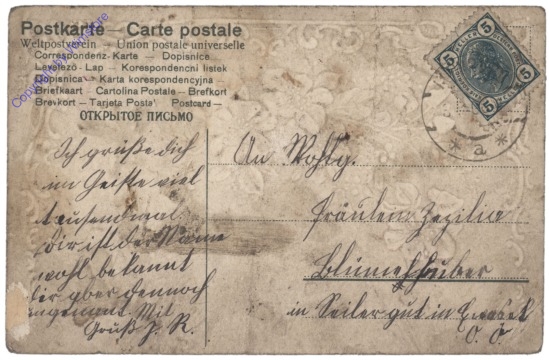 Postkarte — Carte postale
Weltpostverein — Union postale universelle
Correspondenz-Karte — Dopisnice
Levelező-Lap — Korespondencni listek
Dopisnica — Karta korespondencyjna —
Briefkaart — Cartolina Postale — Brefkort
Brevkort — Tarjeta Posta' Postcard —
ОТКРЫТОЕ ПИСЬМО
5 5
5 5
* a *
Ich grüße dich
im Geiste viel
tausendmal
dir ist der Name
wohl bekannt
dir aber dennoch
ungenannt. Mit
Gruß J. R.
An Wohlg.
Fräulein Zezilia
Blümelhuber
in Seilergut in
O. Ö.